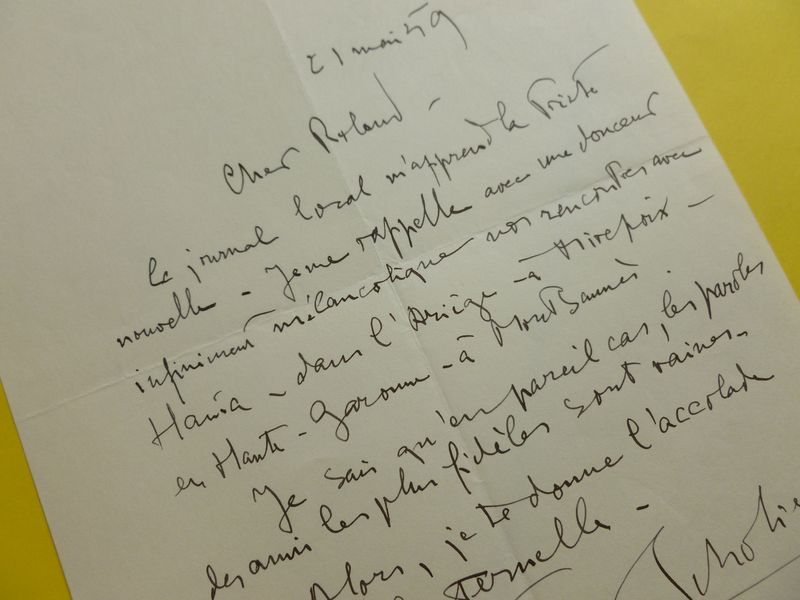 21 mai 59
Cher Roland -
le journal local m'apprend la triste
nouvelle - Je me rappelle avec une douceur
infiniment mélancolique nos rencontres avec
dans l'Ariège - à Mirepoix -
en Haute-Garonne - à Montsaunès.
Je sais qu'en pareil cas, les paroles
des amis les plus fidèles sont vaines.
Alors, je te donne l'accolade
ternelle -